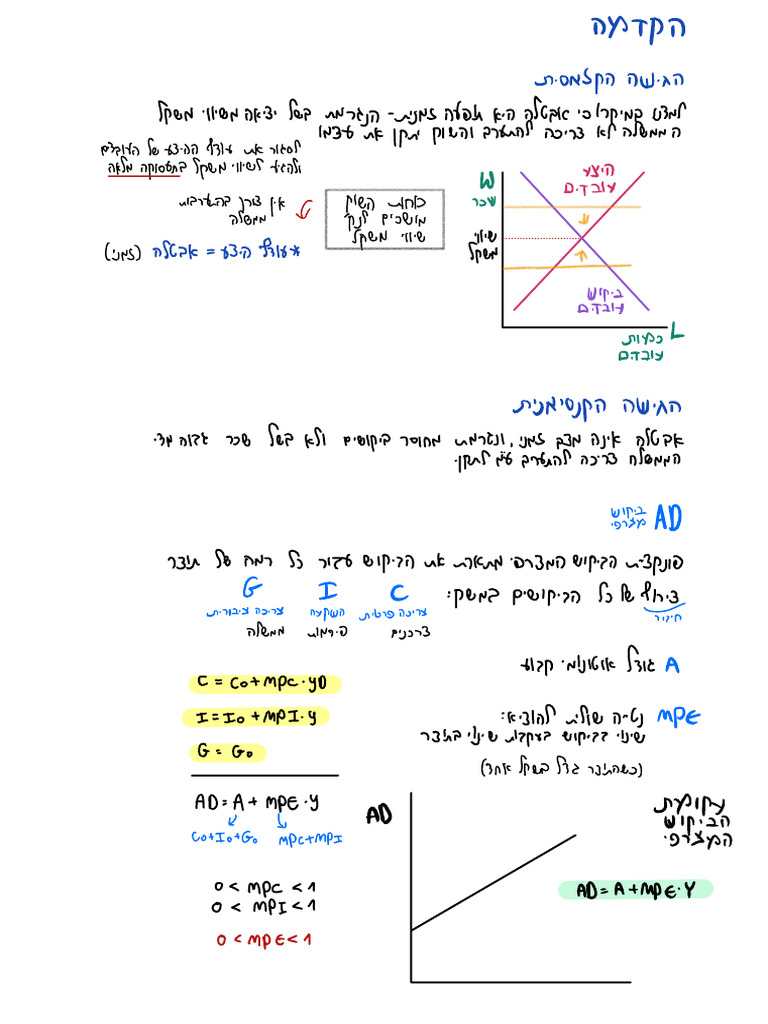 הקדמה
הגישה הקלאסית
למדנו במיקרו כי אבטלה היא תופעה זמנית- הנגרמת בשל יציאה משיווי משקל
הממשלה לא צריכה להתערב והשוק יתקן את עצמו
לסגור את עודף ההיצע של העובדים
ולהגיע לשיווי משקל בתעסוקה מלאה
כוחות השוק
מושכים לנק'
שיווי משקל
אין צורך בהתערבות
ממשלה
עודף היצע = אבטלה (זמני)
W
שכר
היצע
עובדים
שיווי
משקל
ביקוש
עובדים
L
כמות
עובדים
הגישה הקנסיאנית
אבטלה אינה מצב זמני, ונגרמת מחוסר ביקושים ולא בשל שכר גבוה מדי.
הממשלה צריכה להתערב ע״מ לתקן.
AD ביקוש
מצרפי
פונקציית הביקוש המצרפי מתארת את הביקוש עבור כל רמה של תוצר
צירוף של כל הביקושים במשק:
חיבור
C I G
צריכה פרטית השקעה צריכה ציבורית
צרכנים פירמות ממשלה
A גודל אוטונומי קבוע
MPE נטייה שולית להוציא:
שינוי בביקוש בעקבות שינוי בתוצר
(כשהתוצר גדל בשקל אחד)
C = C0 + MPC · YD
I = I0 + MPI · Y
G = G0
AD = A + MPE · Y
C0+I0+G0 MPC+MPI
0 < MPC < 1
0 < MPI < 1
0 < MPE < 1
AD
עקומת
הביקוש
המצרפי
AD = A + MPE · Y